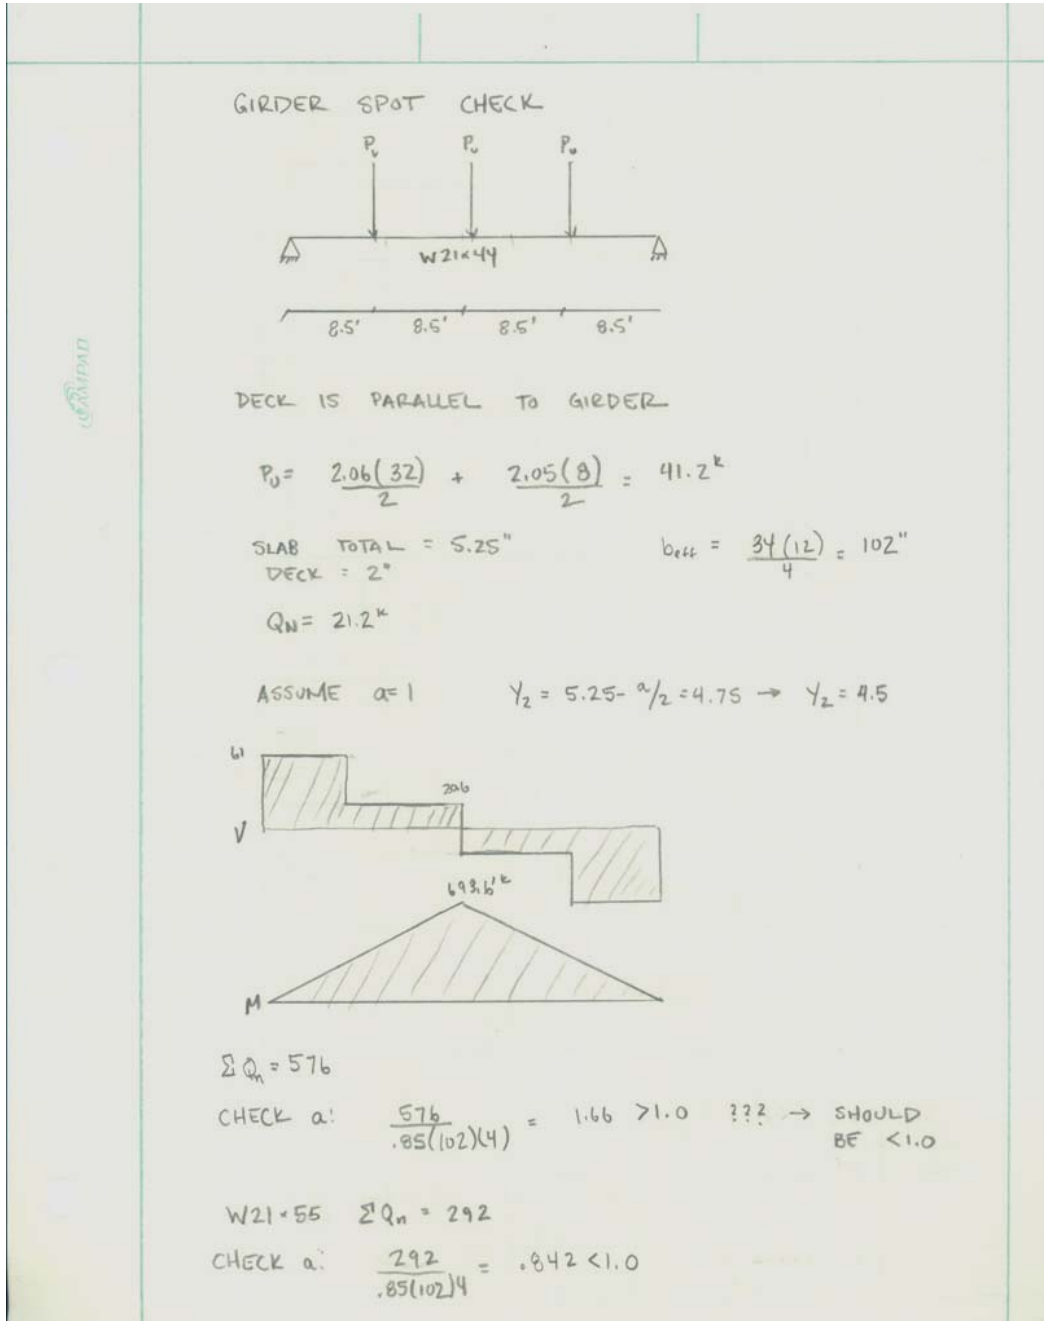 GIRDER SPOT CHECK
Pᵤ Pᵤ Pᵤ
W21×44
8.5' 8.5' 8.5' 8.5'
AMPAD
DECK IS PARALLEL TO GIRDER
Pᵤ = 2.06(32)/2 + 2.05(8)/2 = 41.2ᵏ
SLAB TOTAL = 5.25" b_eff = 34(12)/4 = 102"
DECK = 2"
Q_N = 21.2ᵏ
ASSUME a=1 Y₂ = 5.25 - a/2 = 4.75 → Y₂ = 4.5
61
20.6
V
693.6'ᵏ
M
ΣQₙ = 576
CHECK a: 576/.85(102)(4) = 1.66 >1.0 ??? → SHOULD
BE <1.0
W21×55 ΣQₙ = 292
CHECK a: 292/.85(102)4 = .842 <1.0